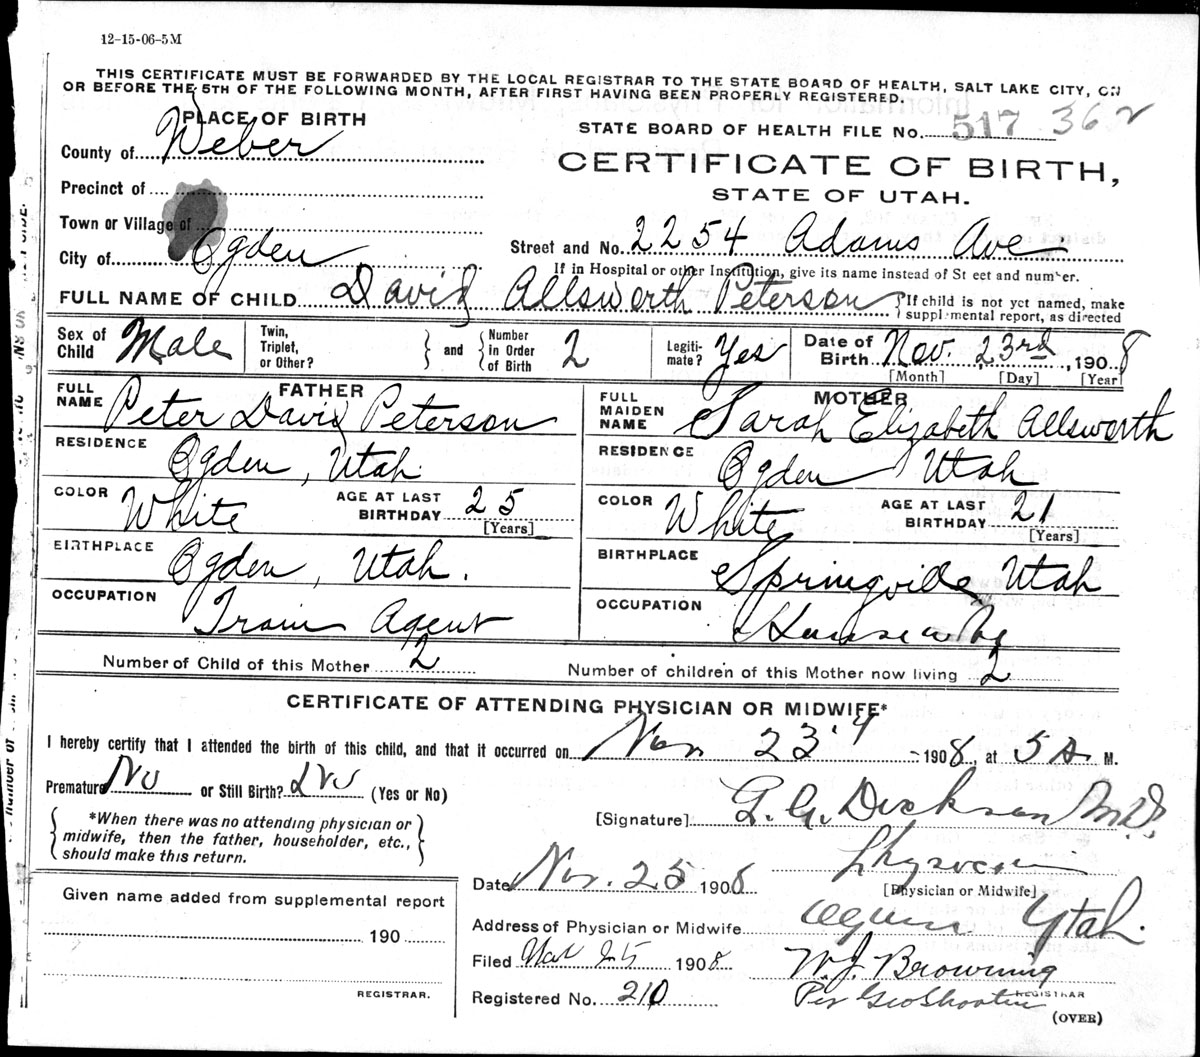 12-15-06-5M
THIS CERTIFICATE MUST BE FORWARDED BY THE LOCAL REGISTRAR TO THE STATE BOARD OF HEALTH, SALT LAKE CITY, ON
OR BEFORE THE 5TH OF THE FOLLOWING MONTH, AFTER FIRST HAVING BEEN PROPERLY REGISTERED.
PLACE OF BIRTH
STATE BOARD OF HEALTH FILE No. 517 362
County of Weber
CERTIFICATE OF BIRTH,
STATE OF UTAH.
Precinct of
Town or Village of
Street and No. 2254 Adams Ave
City of Ogden
If in Hospital or other Institution, give its name instead of Street and number.
FULL NAME OF CHILD David Allsworth Peterson {If child is not yet named, make
supplemental report, as directed
Sex of Child Male Twin, Triplet, or Other? } and { Number in Order of Birth 2 Legitimate? Yes Date of Birth Nov. 23rd, 1908
[Month] [Day] [Year
FATHER
MOTHER
FULL NAME Peter David Peterson FULL MAIDEN NAME Sarah Elizabeth Allsworth
RESIDENCE Ogden, Utah. RESIDENCE Ogden Utah
COLOR White AGE AT LAST BIRTHDAY 25 [Years] COLOR White AGE AT LAST BIRTHDAY 21 [Years]
BIRTHPLACE Ogden, Utah. BIRTHPLACE Springville Utah
OCCUPATION Train Agent OCCUPATION
Number of Child of this Mother 2 Number of children of this Mother now living 2
CERTIFICATE OF ATTENDING PHYSICIAN OR MIDWIFE*
I hereby certify that I attended the birth of this child, and that it occurred on Nov 23 1908, at 5 A. M.
Premature No or Still Birth? No (Yes or No)
*When there was no attending physician or
midwife, then the father, householder, etc.,
should make this return.
[Signature] Dickson M.D.
Physician
Date Nov. 25 1908 [Physician or Midwife]
Given name added from supplemental report
190
REGISTRAR.
Address of Physician or Midwife Ogden Utah.
Filed Nov 25 1908 W. J. Browning
REGISTRAR
Registered No. 210 Per Geo Shorten
(OVER)